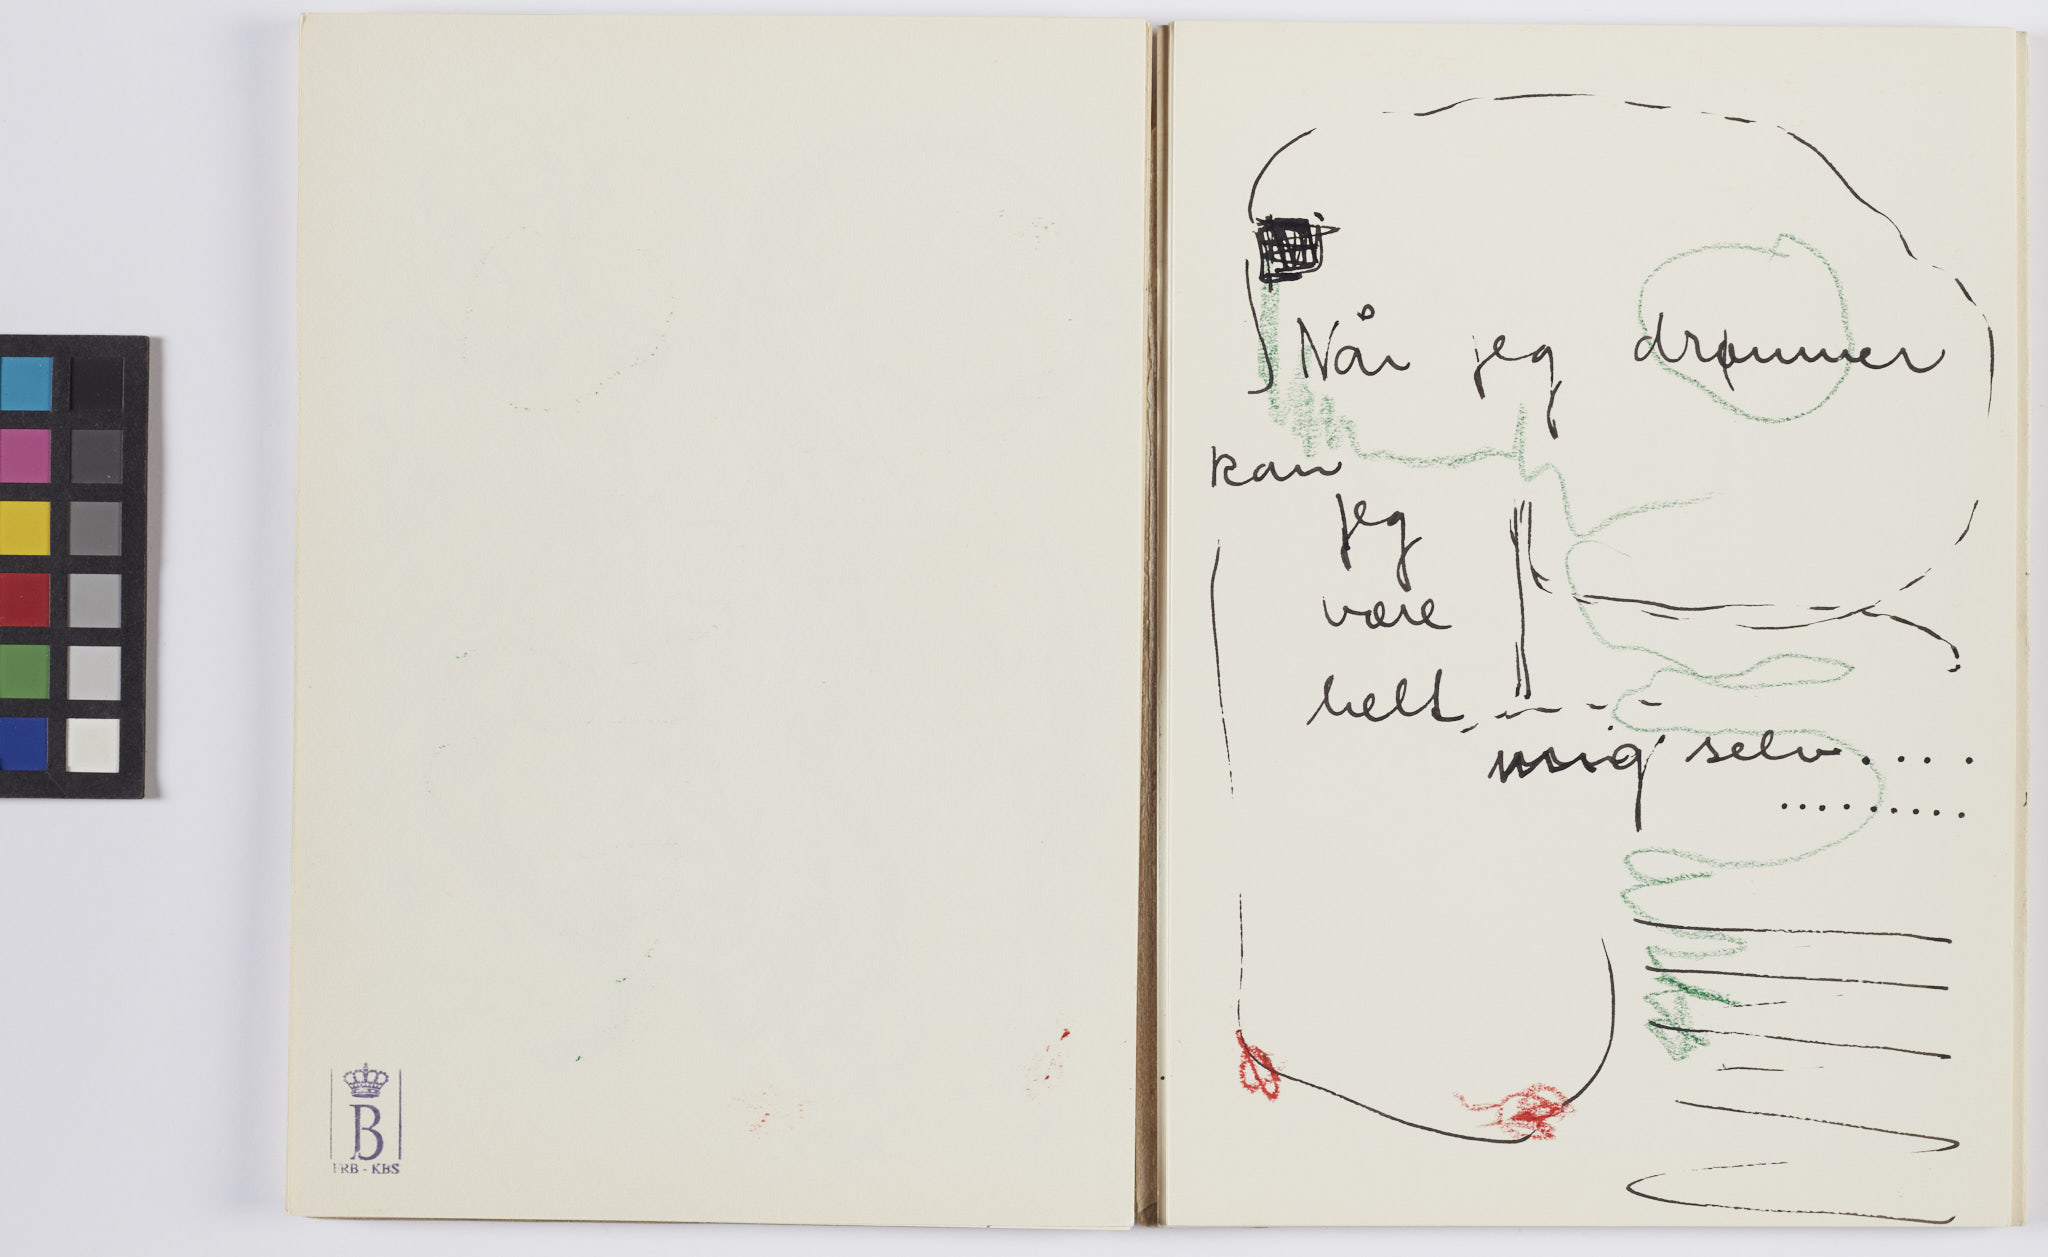 Når jeg drømmer
kan
jeg
være
helt
mig selv....
.........
B
FRB - KBS